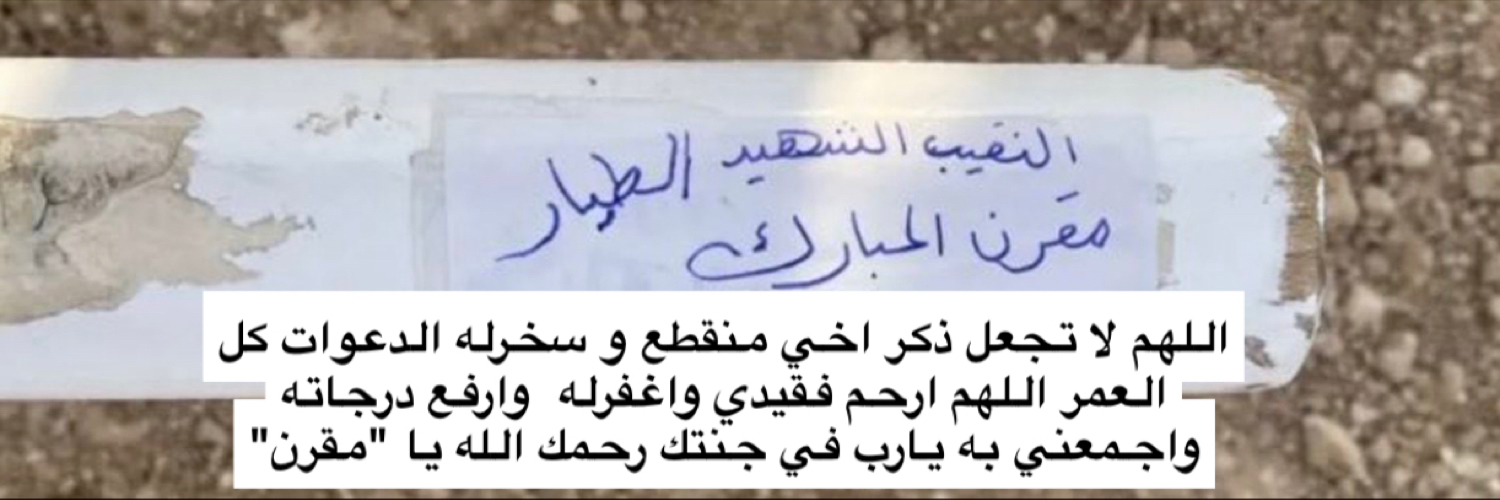 النقيب الشهيد الطيار
مقرن المبارك
اللهم لا تجعل ذكر اخي منقطع و سخرله الدعوات كل
العمر اللهم ارحم فقيدي واغفرله وارفع درجاته
واجمعني به يارب في جنتك رحمك الله يا "مقرن"